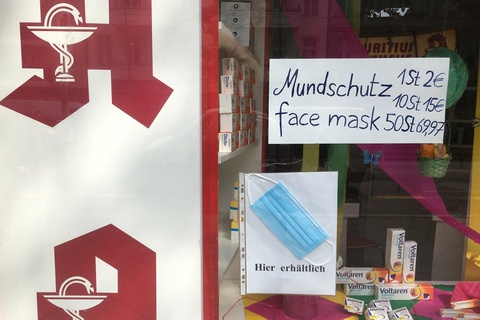 Mundschutz 1St 2€
10St 15€
face mask 50St 69,97
Hier erhältlich
Voltaren
Voltaren
Voltaren
Voltaren